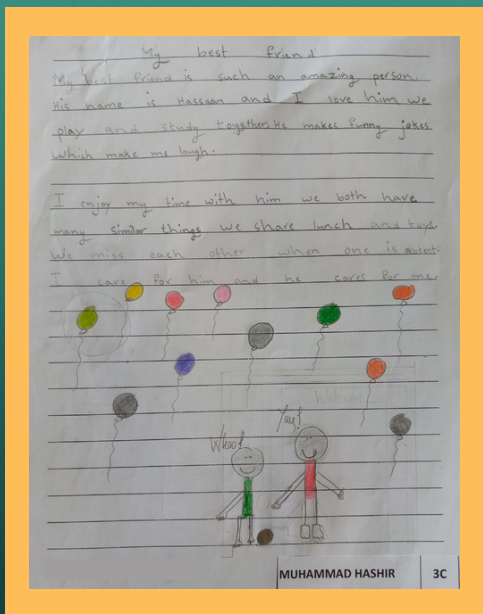 My best friend
My best friend is such an amazing person.
His name is Hassaan and I love him we
play and study together. He makes funny jokes
which make me laugh.
I enjoy my time with him we both have
many similar things we share lunch and toys.
We miss each other when one is absent.
I care for him and he cares for me.
Yay!
Whoo!
MUHAMMAD HASHIR 3C